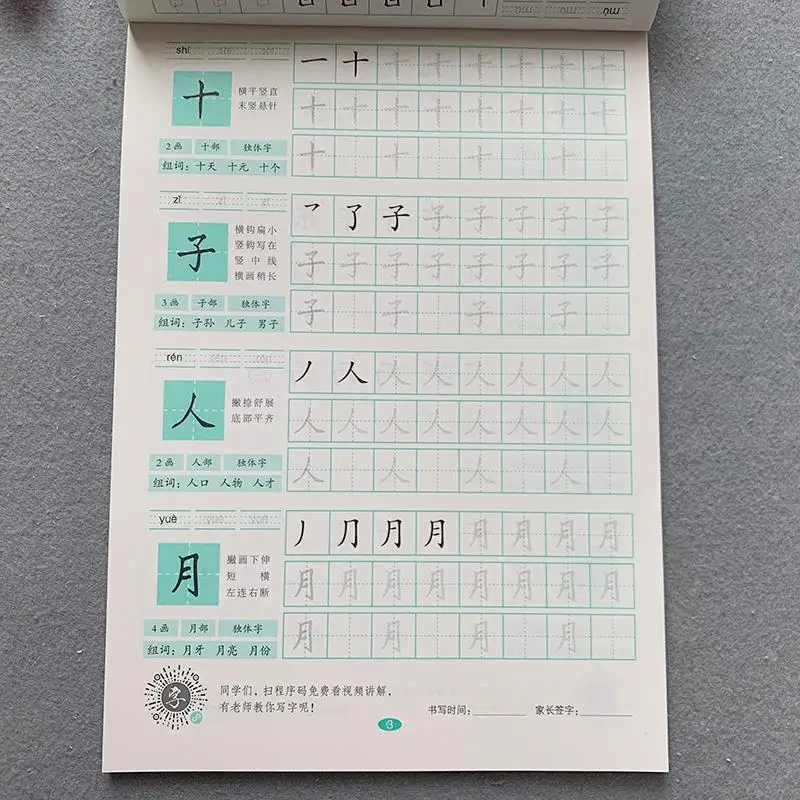 shí shí shí
十 横平竖直
末竖悬针
2画 十部 独体字
组词：十天 十元 十个
一 十 十 十 十 十 十 十
十 十 十 十 十 十 十 十
十 十 十 十
zǐ zǐ zǐ
子 横钩扁小
竖钩写在
竖中线
横画稍长
3画 子部 独体字
组词：子孙 儿子 男子
乛 了 子 子 子 子 子 子
子 子 子 子 子 子 子 子
子 子 子 子
rén rén rén
人 撇捺舒展
底部平齐
2画 人部 独体字
组词：人口 人物 人才
丿 人 人 人 人 人 人 人
人 人 人 人 人 人 人 人
人 人 人 人
yuè yuè yuè
月 撇画下伸
短横
左连右断
4画 月部 独体字
组词：月牙 月亮 月份
丿 ⺆ 月 月 月 月 月 月
月 月 月 月 月 月 月 月
月 月 月 月
字
同学们，扫程序码免费看视频讲解，
有老师教你写字呢！
书写时间：________ 家长签字：________
3